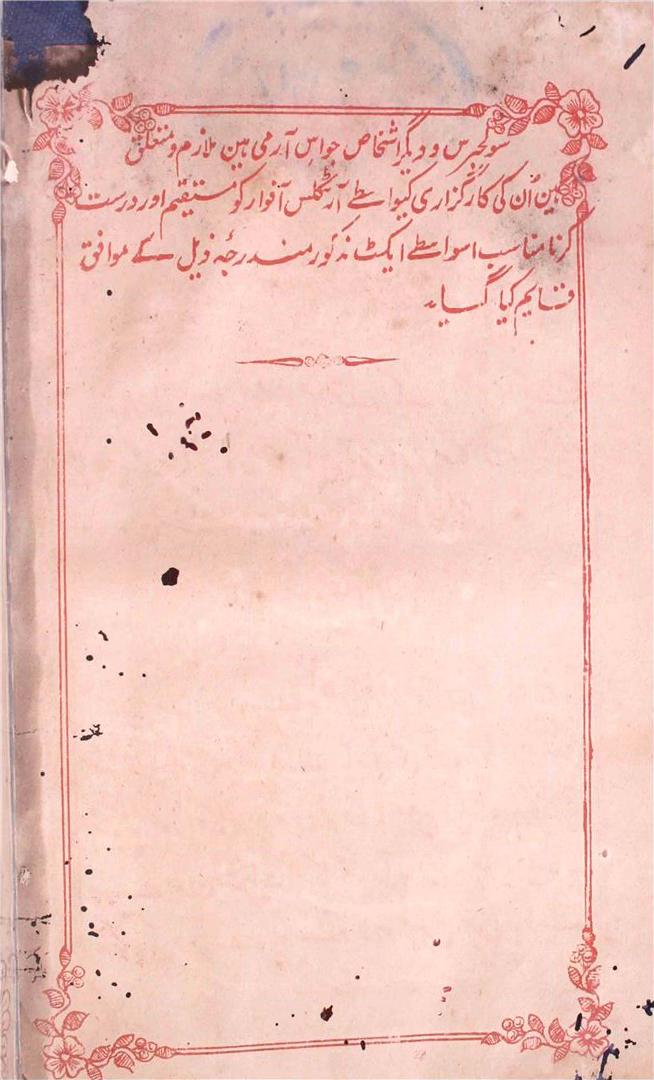 سولجرس و دیگر اشخاص جو اس آرمی ہین ملازم و متعلق
ہین اُن کی کارگزاری کیواسطے آرٹکلس آفوار کو مستقیم اور درست
کرنا مناسب اسواسطے ایکٹ مذکور مندرجۂ ذیل کے موافق
قایم کیا گیا۔